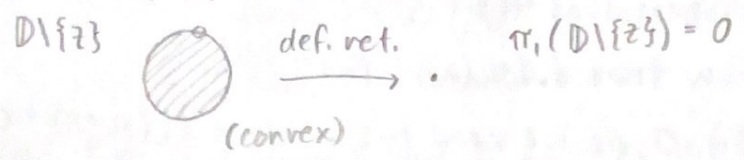 D\{z} def. ret. π₁(D\{z}) = 0
(convex)